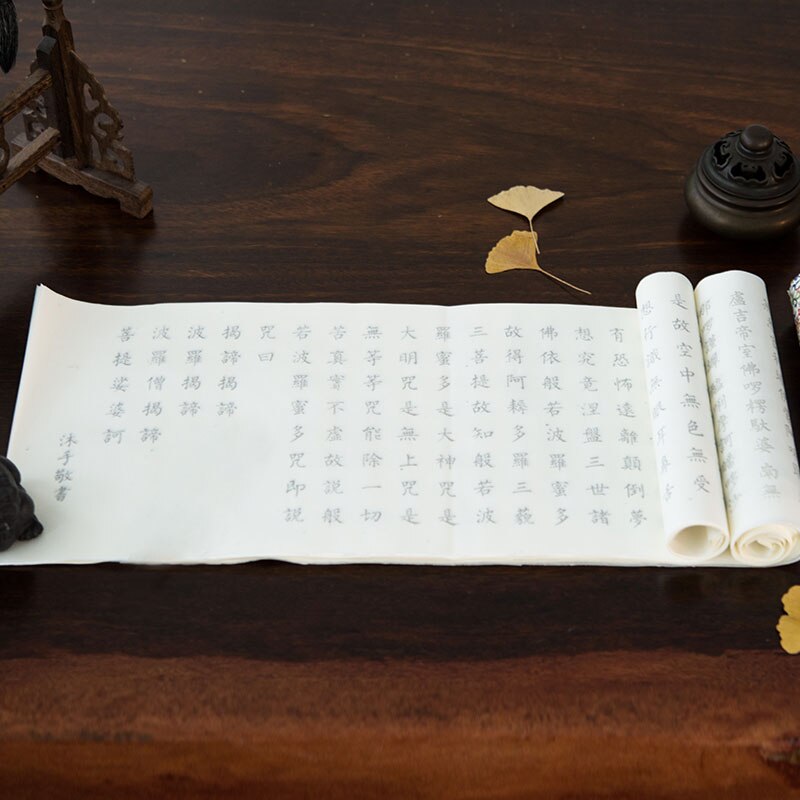 南無
盧吉帝室佛啰楞馱婆
是故空中無色無受
想行識無眼耳鼻舌
有恐怖遠離顛倒夢
想究竟涅盤三世諸
佛依般若波羅蜜多
故得阿耨多羅三藐
三菩提故知般若波
羅蜜多是大神咒是
大明咒是無上咒是
無等等咒能除一切
苦真實不虛故說般
若波羅蜜多咒即說
咒曰
揭諦揭諦
波羅揭諦
波羅僧揭諦
菩提娑婆訶
沐手敬書